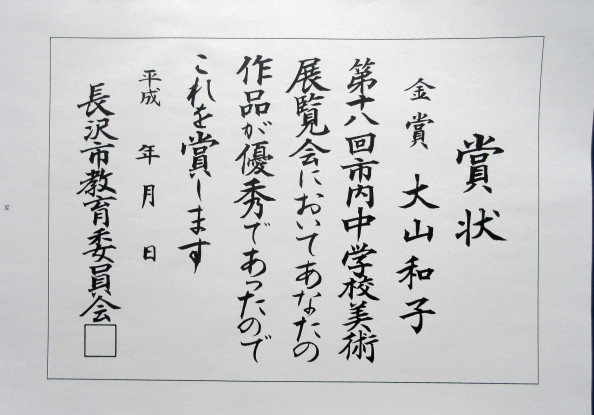 賞状
金賞 大山和子
第十八回市内中学校美術
展覧会においてあなたの
作品が優秀であったので
これを賞します
平成 年 月 日
長沢市教育委員会